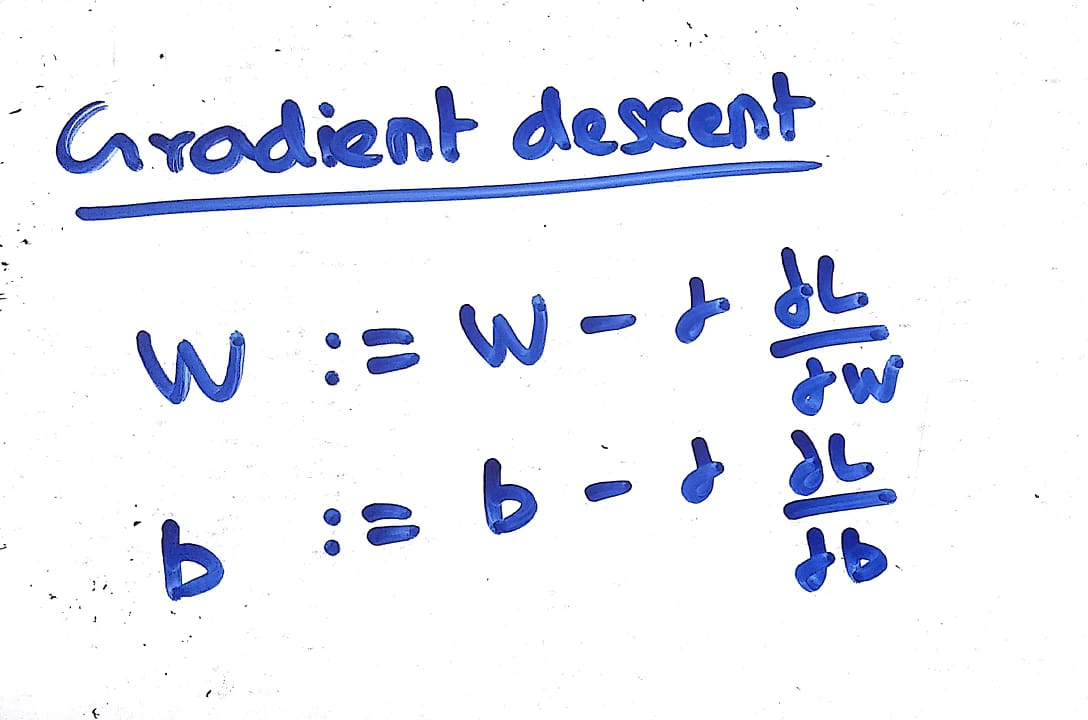 Gradient descent
W := W - α ∂L/∂W
b := b - α ∂L/∂b